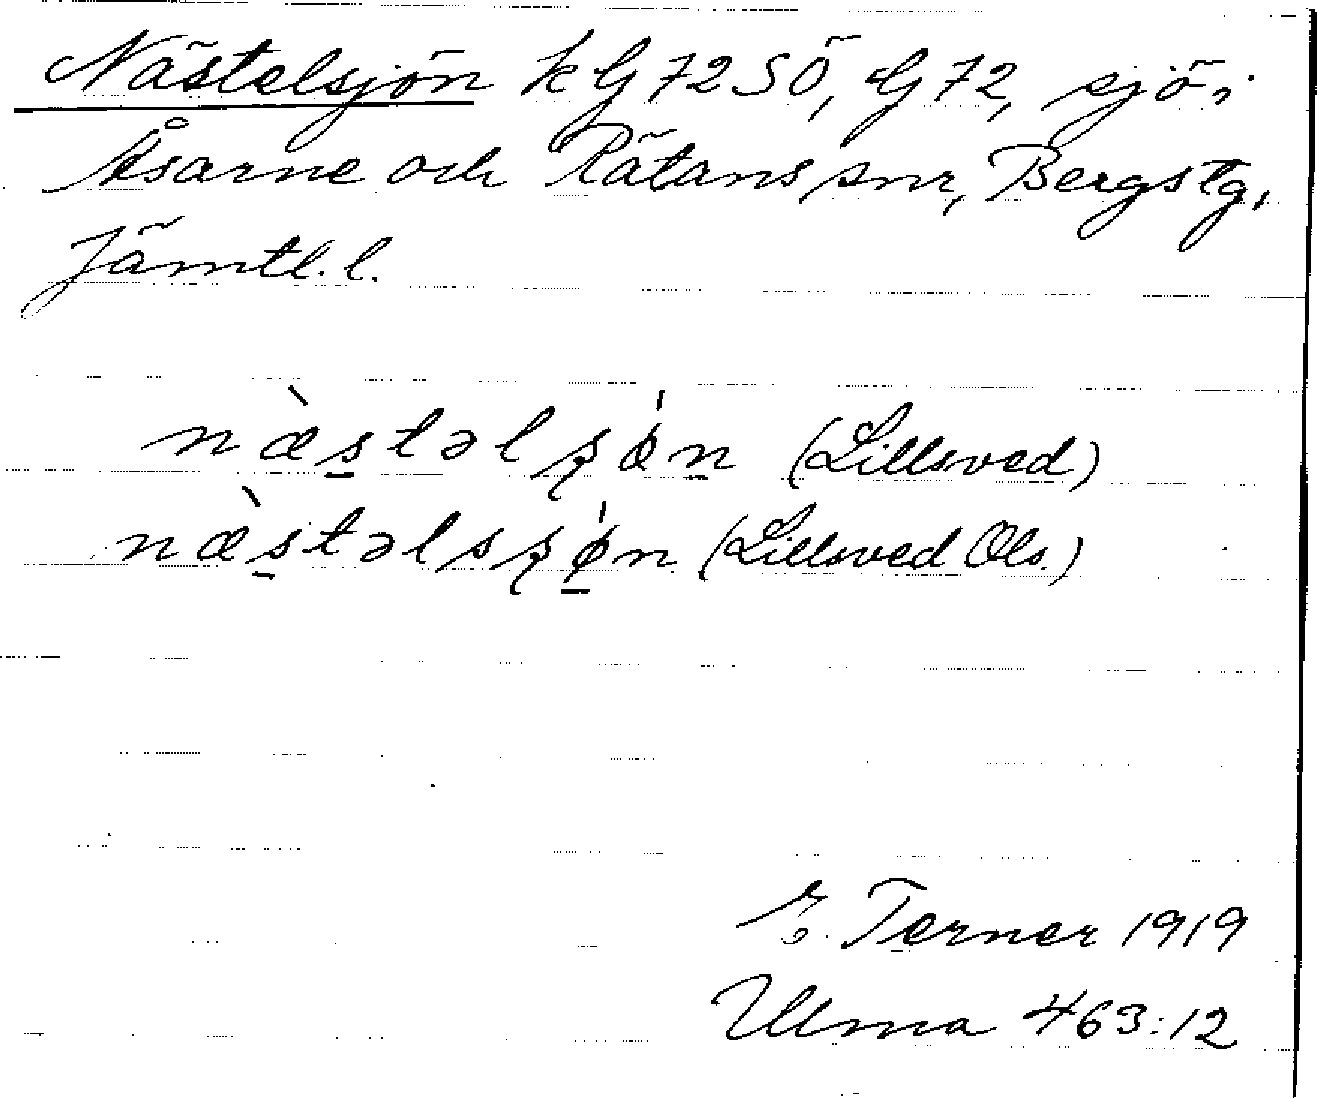 Nästelsjön k G 72 SÖ, G 72, sjö i
Åsarne och Rätans snr, Bergs tg,
Jämtl. l.
næ̀s̲təlʂǿn̲ (Lillsved)
næ̀s̲təlsʂǿ̲n (Lillsved Ols.)
E. Terner 1919
Ulma 463:12